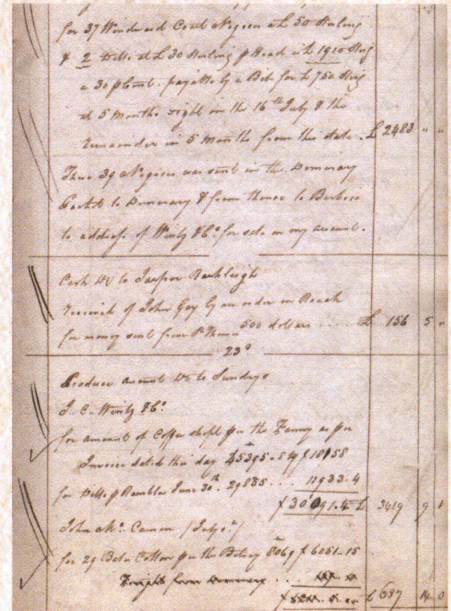 for 37 Windward Coast Negroes at £50 Sterling
& 2 Ditto at £30 Sterling p Head is £1910 Stg
a 30 p Cent. payable by a Bill for £750 Stg
at 5 Months sight on the 16th July & the
Remainder in 5 Months from this date. £ 2483 " "
These 39 Negroes was sent in the Demerary
to Demerary & from thence to Berbice
to address of Winty & Co. for sale on my account.
Cash Dr to Jasper
of John Gay by an order on
for money sent from St Thomas 500 dollars .... £ 156 5 "
23d
Produce account Dr to Sundrys
J. C. Winty & Co.
for amount of Coffee shipt p the Fanny as per
Invoice dated this day 45395. f 18158
for Ditto p Rambler June 30th 29835 ... 11933.4
f 30091.4 £ 3419 9 1
John Mc. Camon
for 29 Bales Cotton p the Betsey 8069 f 6051.15
from Demerary
£ 687 14 0